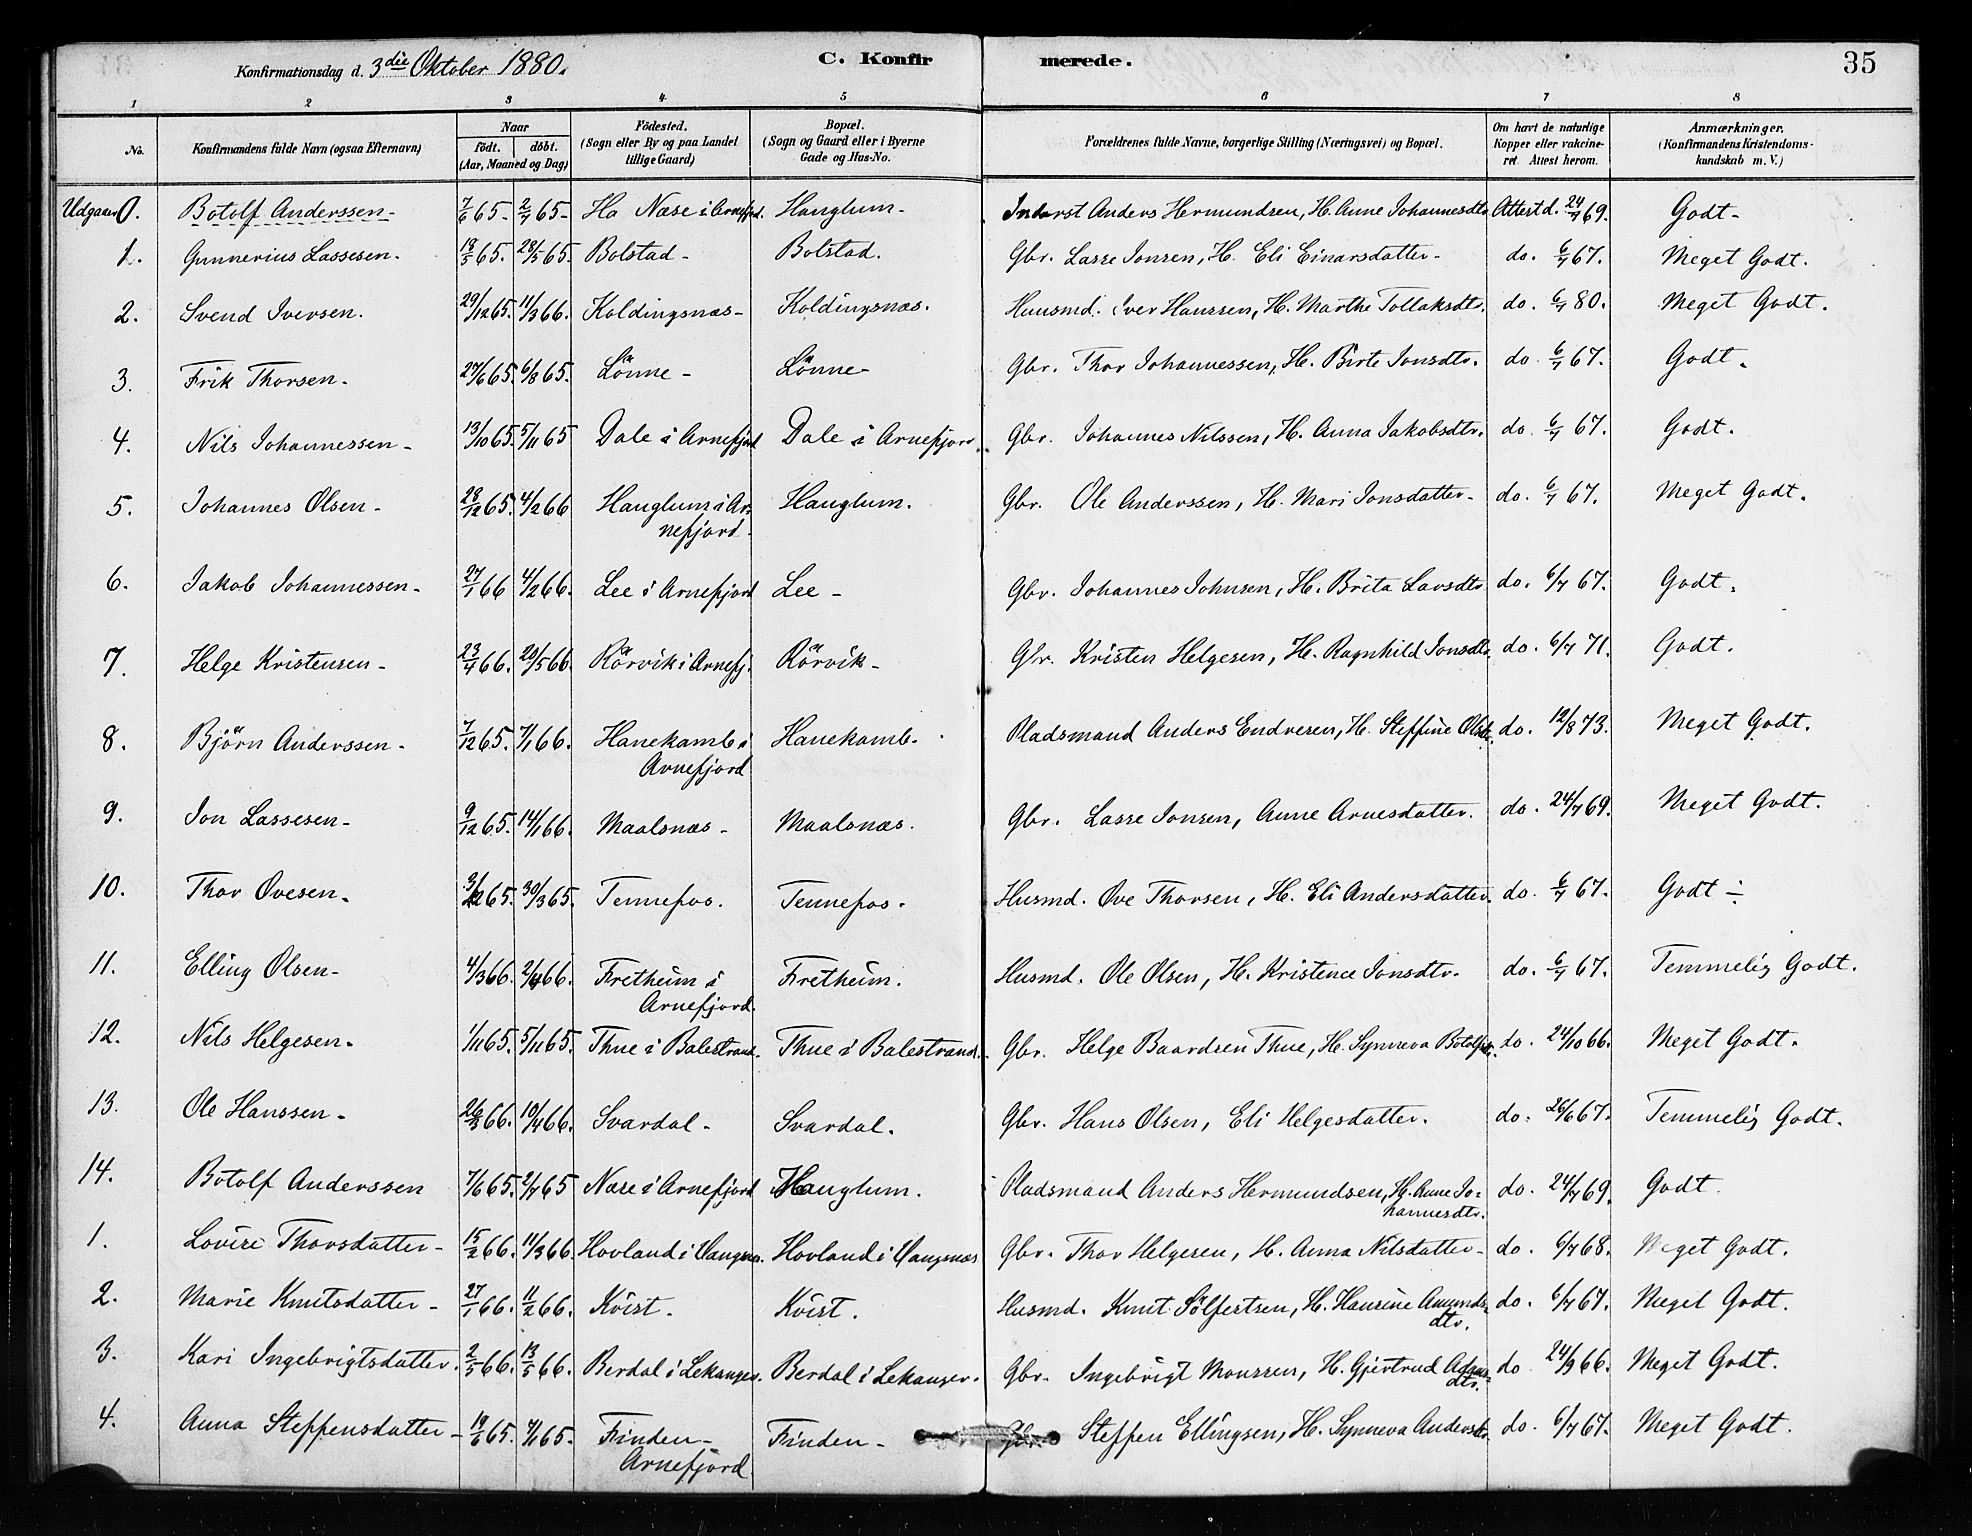 Konfirmationsdag d. 3die Oktober 1880. C. Konfirmerede. 35
1 2 3 4 5 6 7 8
No. Konfirmandens fulde Navn (ogsaa Efternavn) Naar födt. döbt. (Aar, Maaned og Dag) Födested. (Sogn eller By og paa Landet tillige Gaard) Bopæl. (Sogn og Gaard eller i Byerne Gade og Hus-No. Forældrenes fulde Navne, borgerlige Stilling (Næringsvei) og Bopæl. Om havt de naturlige Kopper eller vakcineret. Attest herom. Anmærkninger. (Konfirmandens Kristendomskundskab m. V.)
Udgaar 0. Botolf Anderssen - 7/6 65 - 2/7 65 - Ha Nese i Arnefjd. Hauglum - Anders Hermundsen, H. Anne Johannesdtr Attest d. 24/7 69. Godt -
1. Gunnerius Lassesen. 13/5 65. 28/5 65. Bolstad - Bolstad. Gbr. Lasse Jonsen, H. Eli Einarsdatter - do. 6/7 67. Meget Godt.
2. Svend Iversen. 29/12 65. 11/3 66. Koldingsnæs - Koldingsnæs. Huusmd. Iver Hanssen, H. Marthe Tollaksdtr. do. 6/7 80. Meget Godt.
3. Frik Thorsen - 27/6 65. 6/8 65. Lönne - Lönne - Gbr. Thor Johannessen, H. Birte Jonsdtr. do. 6/7 67. Godt.
4. Nils Johannessen - 13/10 65. 5/11 65 Dale i Arnefjord Dale i Arnefjord Gbr. Johannes Nilssen, H. Anna Jakobsdtr. do. 6/7 67. Godt.
5. Johannes Olsen - 28/12 65. 4/2 66 Hauglum i Arnefjord. Hauglum. Gbr. Ole Anderssen, H. Mari Jonsdatter - do. 6/7 67. Meget Godt.
6. Jakob Johannessen - 27/1 66 4/2 66. Lee i Arnefjord Lee - Gbr. Johannes Johnsen, H. Brita Larsdtr do. 6/7 67. Godt.
7. Helge Kristensen - 23/4 66. 20/5 66. Rörvik i Arnefj. Rörvik - Gbr. Kristen Helgesen, H. Ragnhild Jonsdtr. do. 6/7 71. Godt.
8. Björn Anderssen - 7/12 65. 7/1 66. Hanekamb i Arnefjord Hanekamb. Pladsmand Anders Endresen, H. Steffine Olsdtr. do. 12/8 73. Meget Godt.
9. Jon Lassesen - 9/12 65. 14/1 66. Maalsnæs - Maalsnæs. Gbr. Lasse Jonsen, Anne Arnesdatter. do. 24/7 69. Meget Godt.
10. Thor Ovesen. 65. 30/3 65. Tennefos. Tennefos. Husmd. Ove Thorsen, H. Eli Andersdatter. do. 6/7 67. Godt ÷
11. Elling Olsen - 4/3 66. 2/4 66. Fretheim i Arnefjord. Fretheim. Husmd. Ole Olsen, H. Kristence Jonsdtr. do. 6/7 67. Temmelig Godt.
12. Nils Helgesen. 1/11 65. 5/11 65. Thue i Balestrand. Thue i Balestrand. Gbr. Helge Baardsen Thue, H. Synneva Botolfsdtr. do. 24/10 66. Meget Godt.
13. Ole Hanssen - 26/3 66. 10/4 66. Svardal - Svardal. Gbr. Hans Olsen, Eli Helgesdatter. do. 26/6 67. Temmelig Godt.
14. Botolf Anderssen 7/6 65. 2/7 65 Nese i Arnefjord Hauglum. Pladsmand Anders Hermundsen, H. Anne Johannesdtr. do. 24/7 69. Godt.
1. Lovise Thorsdatter - 15/2 66. 11/3 66. Hovland i Vangsnes. Hovland i Vangsnæs Gbr. Thor Helgesen, H. Anna Nilsdatter - do. 6/7 68. Meget Godt.
2. Marie Knutsdatter - 27/1 66. 11/2 66. Kvist. Kvist. Husmd. Knut Sölfestsen, H. Hansine Amundsdtr. do. 6/7 67. Meget Godt.
3. Kari Ingebrigtsdatter. 2/5 66. 13/5 66. Berdal i Lekanger. Berdal i Lekanger. Gbr. Ingebrigt Monssen, H. Gjertrud dtr. do 24/9 66. Meget Godt.
4. Anna Steffensdatter - 19/6 65. 65. Finden - Arnefjord Finden - Gbr. Steffen Ellingsen, H. Synneva Andersdtr. do. 6/7 67. Meget Godt.